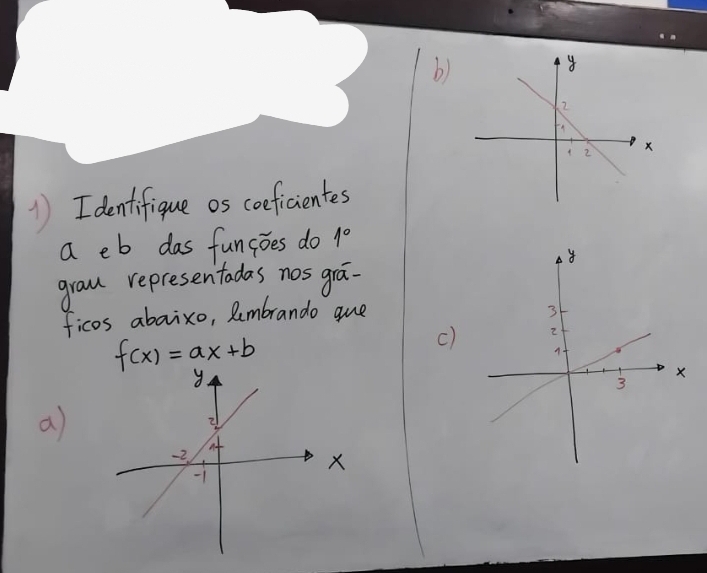 1) Identifique os coeficientes
a e b das funções do 1º
grau representadas nos grá-
ficos abaixo, lembrando que
f(x) = ax + b
a)
y
2
1
-2
-1
x
b)
y
2
1
1 2
x
c)
y
3
2
1
3
x